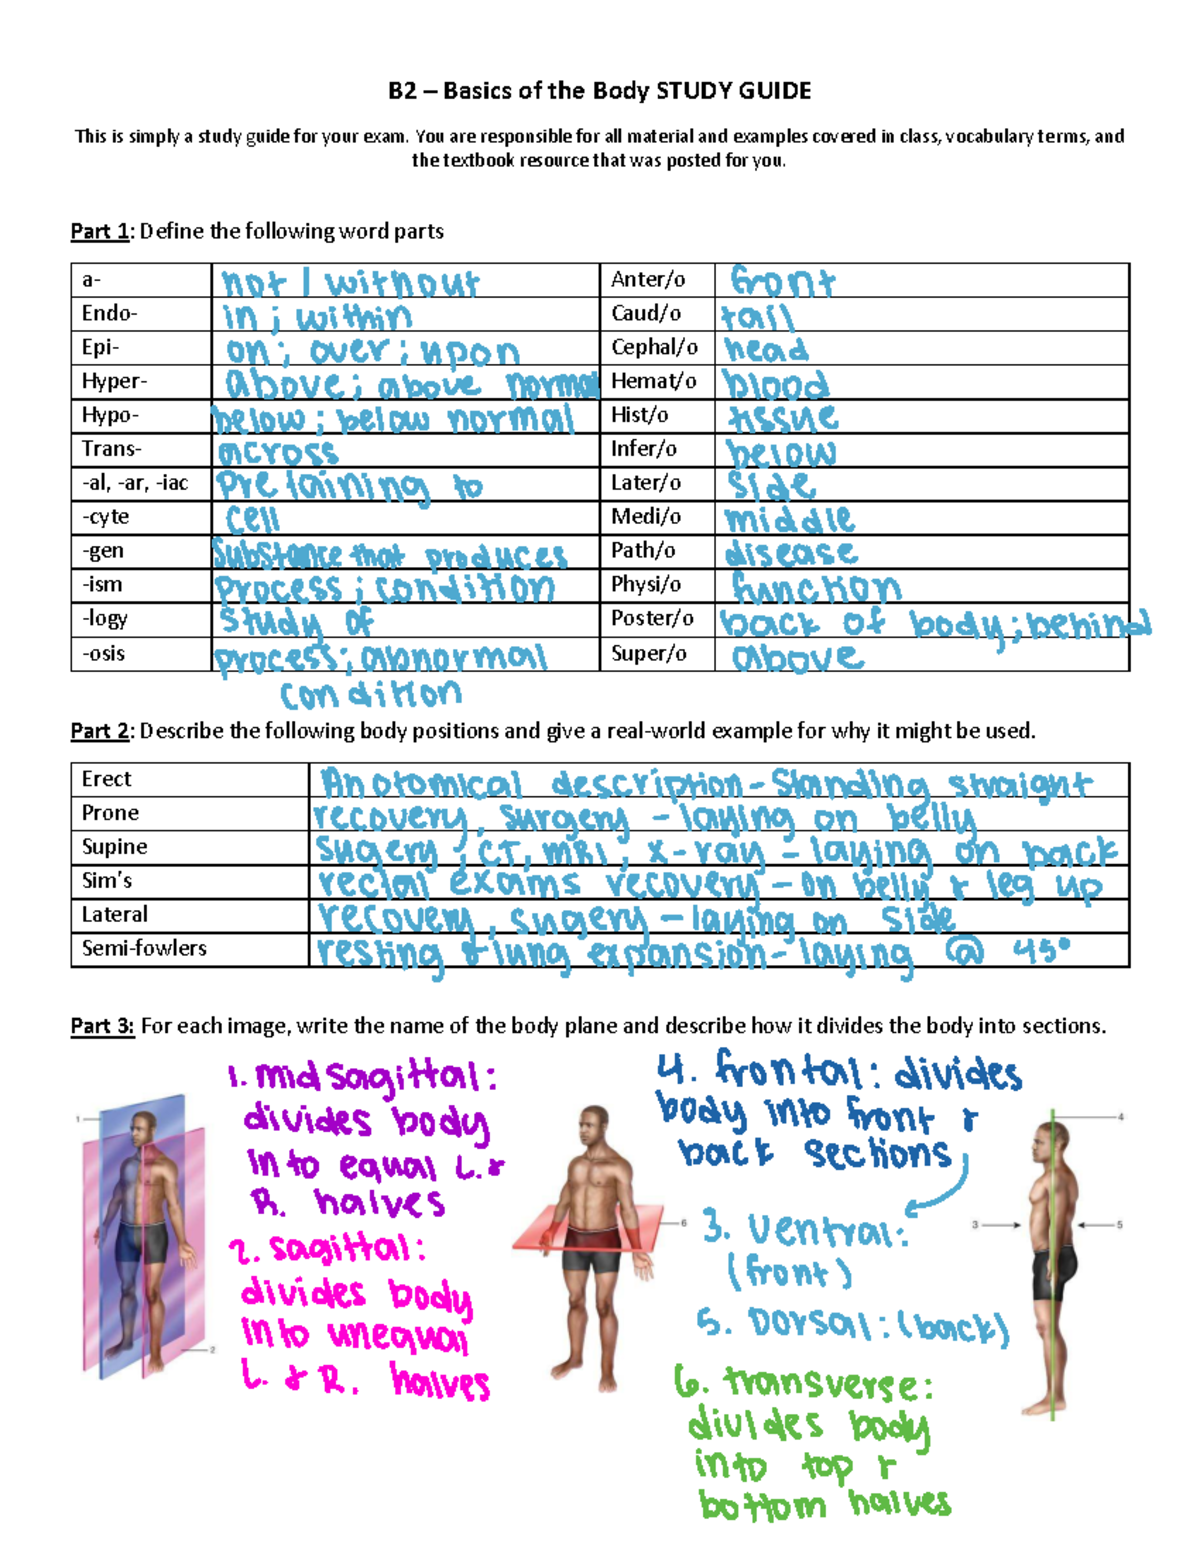 B2 – Basics of the Body STUDY GUIDE
This is simply a study guide for your exam. You are responsible for all material and examples covered in class, vocabulary terms, and
the textbook resource that was posted for you.
Part 1: Define the following word parts
a- not | without Anter/o front
Endo- in ; within Caud/o tail
Epi- on ; over ; upon Cephal/o head
Hyper- above ; above normal Hemat/o blood
Hypo- below ; below normal Hist/o tissue
Trans- across Infer/o below
-al, -ar, -iac Pretaining to Later/o side
-cyte cell Medi/o middle
-gen Substance that produces Path/o disease
-ism process ; condition Physi/o function
-logy study of Poster/o back of body ; behind
-osis process ; abnormal Super/o above
condition
Part 2: Describe the following body positions and give a real-world example for why it might be used.
Erect Anotomical description - Standing straight
Prone recovery, surgery - laying on belly
Supine sugery ; CT, MRI ; x-ray - laying on back
Sim's rectal exams recovery - on belly & leg up
Lateral recovery, sugery - laying on side
Semi-fowlers resting & lung expansion - laying @ 45°
Part 3: For each image, write the name of the body plane and describe how it divides the body into sections.
1. midsagittal:
divides body
into equal L. &
R. halves
2. sagittal:
divides body
into unequal
L. & R. halves
1
2
4. frontal: divides
body into front &
back sections
3. ventral:
(front)
5. Dorsal: (back)
6. transverse:
divides body
into top &
bottom halves
6
4
3
5